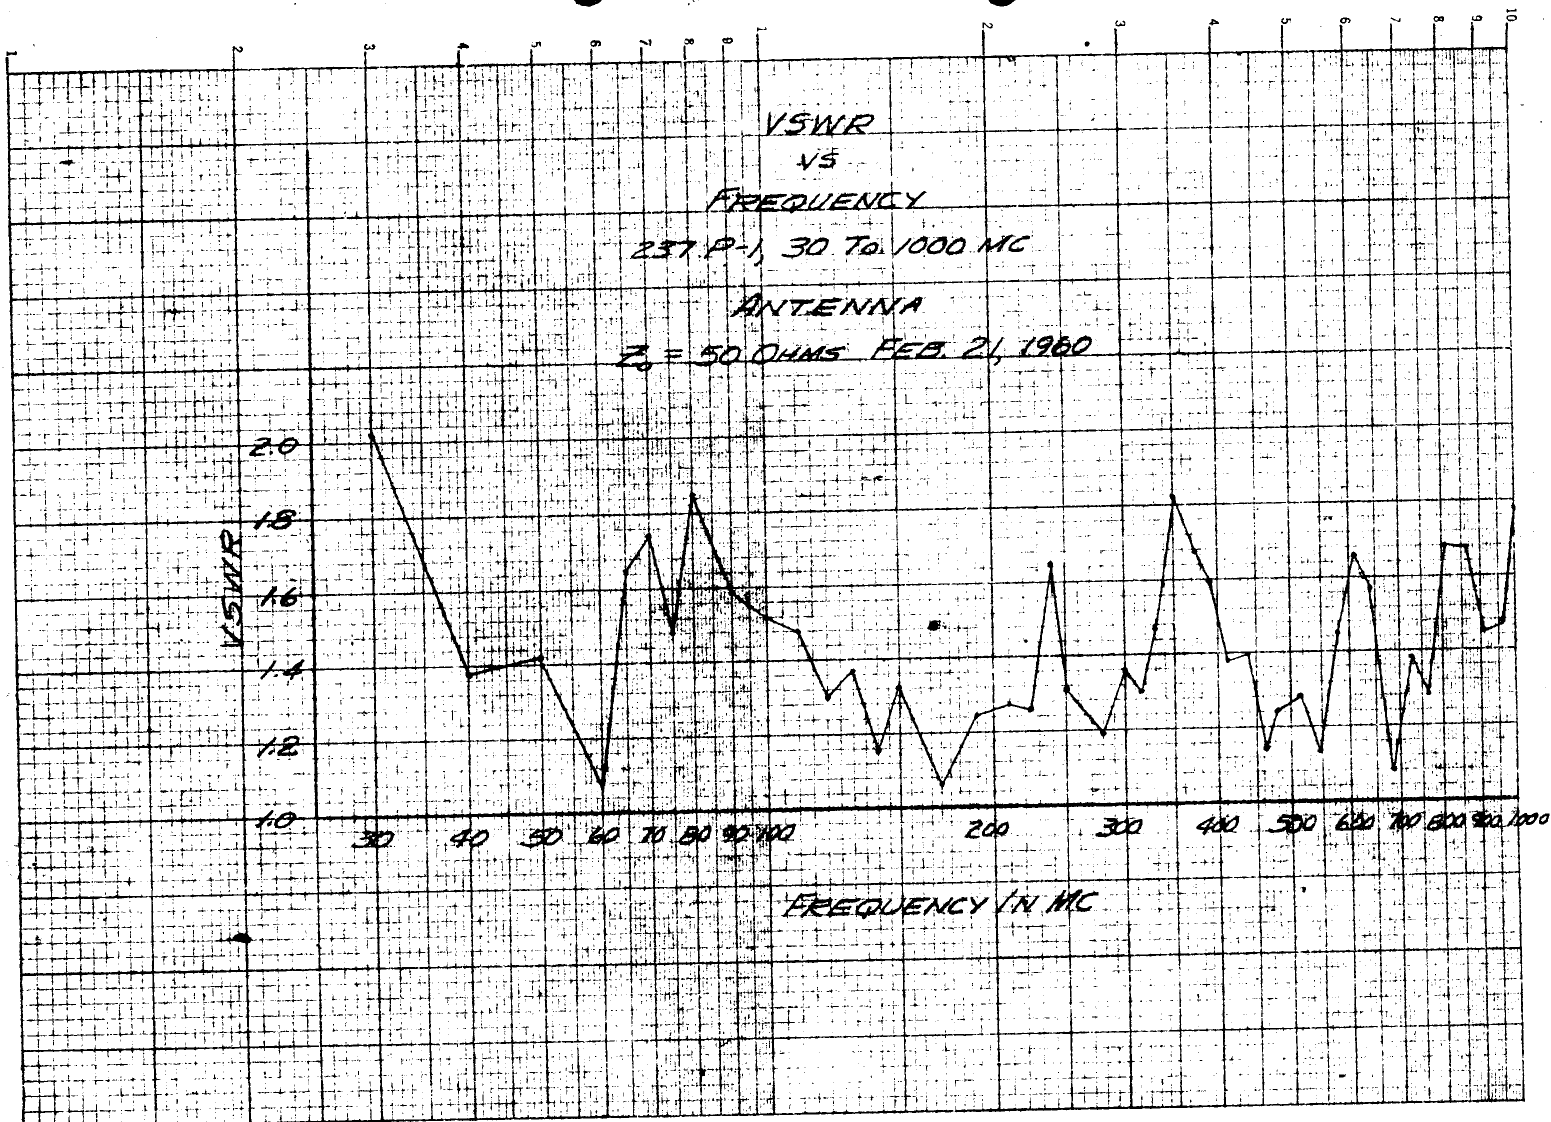 1 2 3 4 5 6 7 8 9 1 2 3 4 5 6 7 8 9 10
VSWR
VS
FREQUENCY
237 P-1, 30 TO 1000 MC
ANTENNA
Z₀ = 50 OHMS FEB. 21, 1960
2.0
1.8
1.6
1.4
1.2
1.0
VSWR
30 40 50 60 70 80 90 100 200 300 400 500 600 700 800 900 1000
FREQUENCY IN MC